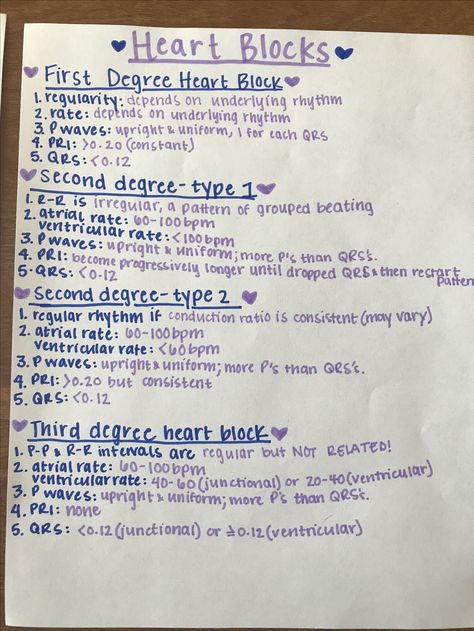 Heart Blocks
First Degree Heart Block
1. regularity: depends on underlying rhythm
2. rate: depends on underlying rhythm
3. P waves: upright & uniform, 1 for each QRS
4. PRI: >0.20 (constant)
5. QRS: <0.12
Second degree-type 1
1. R-R is irregular, a pattern of grouped beating
2. atrial rate: 60-100bpm
ventricular rate: <100bpm
3. P waves: upright & uniform; more P's than QRS's.
4. PRI: become progressively longer until dropped QRS & then restart pattern
5. QRS: <0.12
Second degree-type 2
1. regular rhythm if conduction ratio is consistent (may vary)
2. atrial rate: 60-100bpm
ventricular rate: <60bpm
3. P waves: upright & uniform; more P's than QRS's.
4. PRI: >0.20 but consistent
5. QRS: <0.12
Third degree heart block
1. P-P & R-R intervals are regular but NOT RELATED!
2. atrial rate: 60-100bpm
ventricular rate: 40-60 (junctional) or 20-40 (ventricular)
3. P waves: upright & uniform; more P's than QRS's.
4. PRI: none
5. QRS: <0.12 (junctional) or ≥0.12 (ventricular)